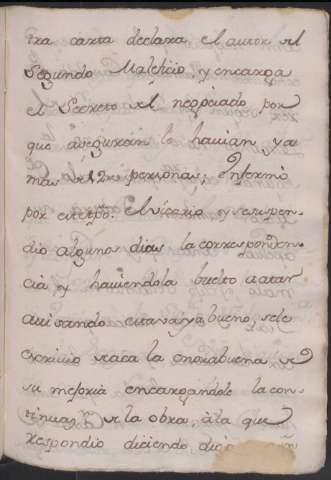 tra carta declara el autor el
Segundo Maleficio, y encarga
el Secreto del negociado, por
que aseguran lo havian, ya
mas de 12 personas; Enfermó
por entonces. El vicario y suspen-
dio algunos dias la corresponden-
cia y haviendola buelto a atar
avisando estava ya bueno, sele
escrivio
la enorabuena de
su mejoria encargandole la con-
tinuaz.n de la obra, àla que
Respondio diciendo,